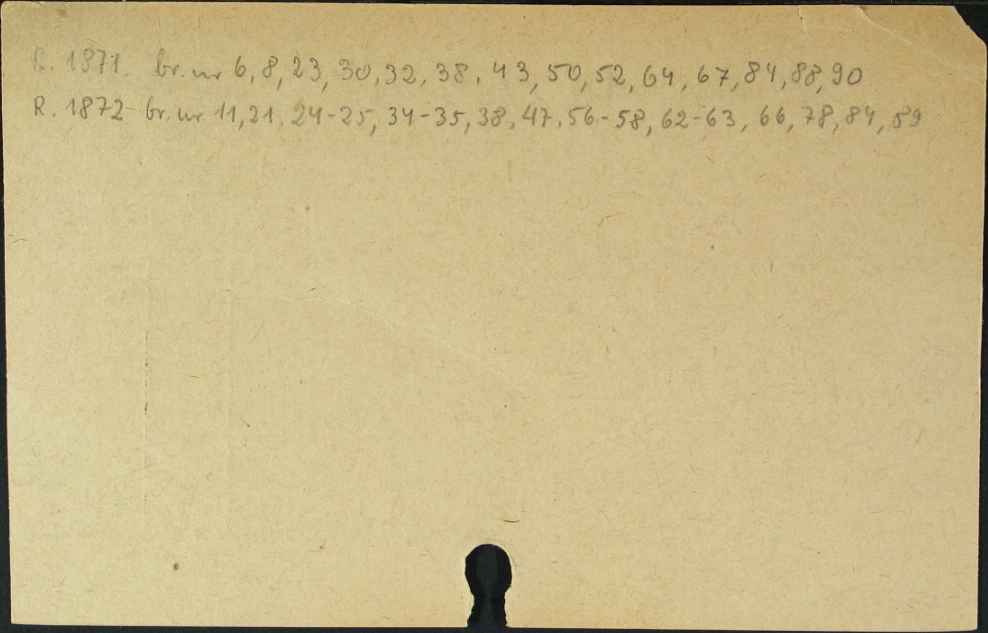 R. 1871. br. nr 6, 8, 23, 30, 32, 38, 43, 50, 52, 64, 67, 84, 88, 90
R. 1872 br. nr 11, 21, 24-25, 34-35, 38, 47, 56-58, 62-63, 66, 78, 84, 89